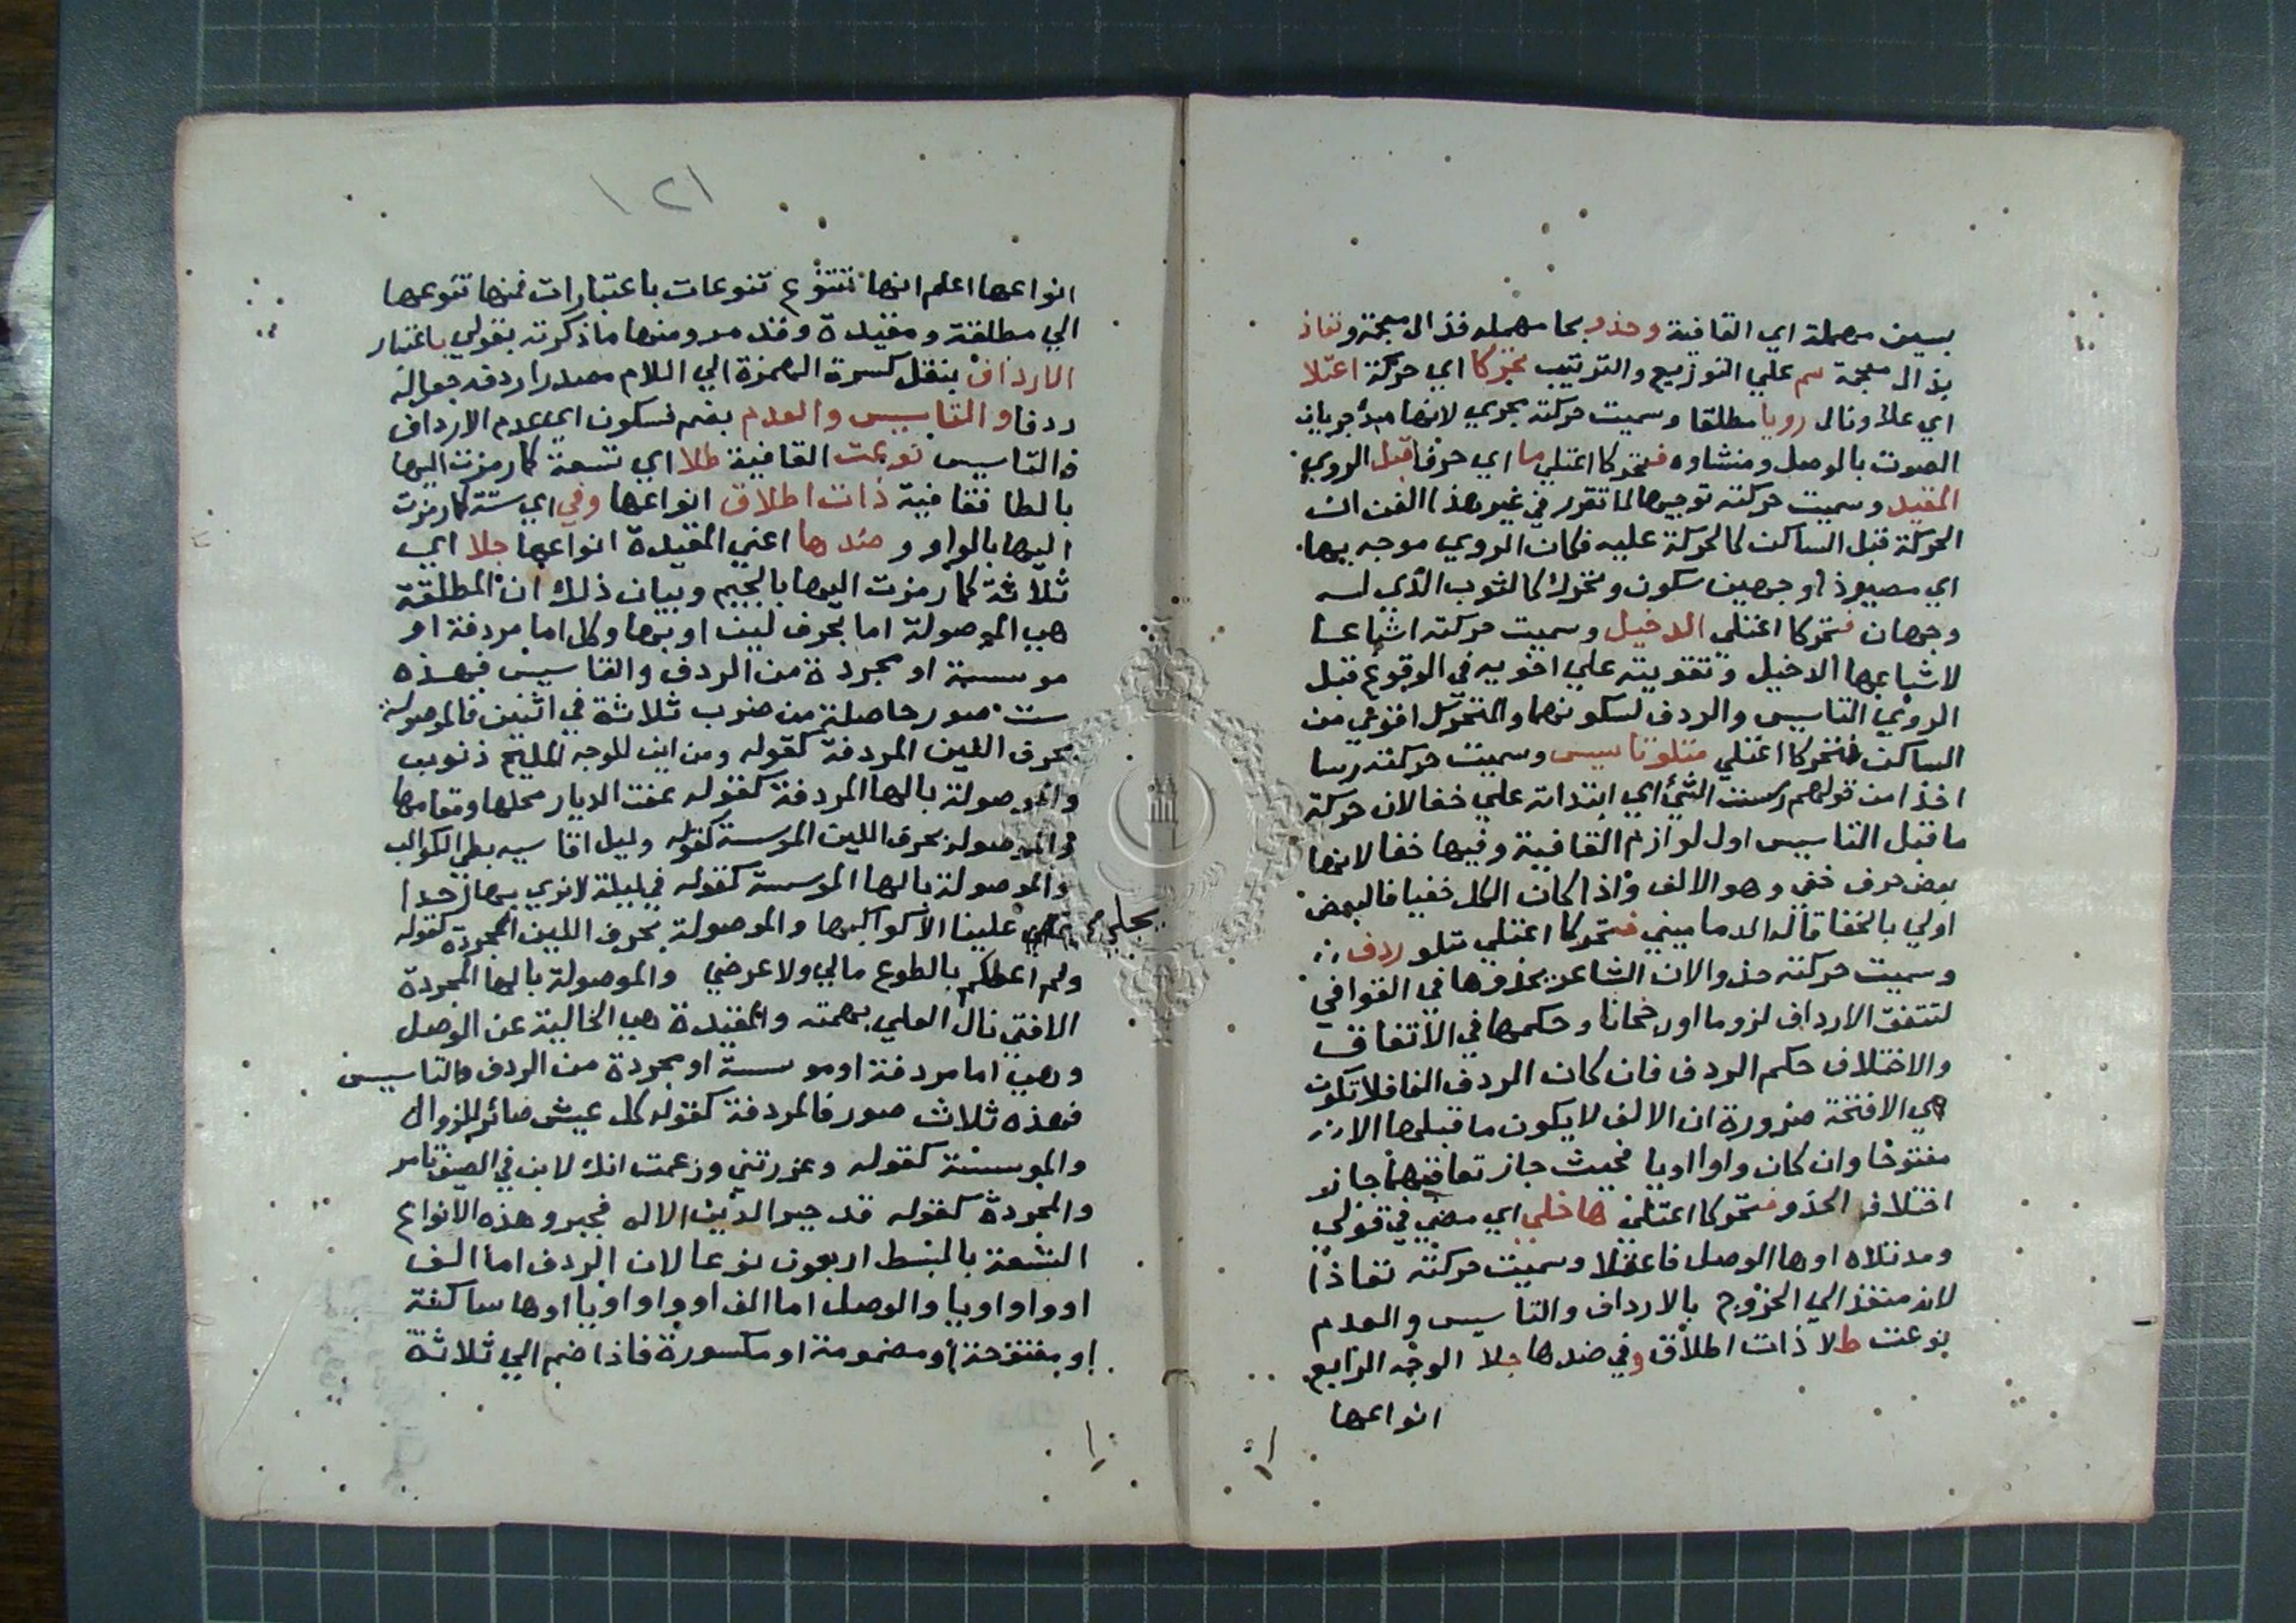 بسين مهملة اي القافية وحذو بحا مهملة فذال معجمة ونفاذ
بذال معجمة سم علي التوزيع والترتيب تحركا اي حركة اعتلا
اي علا ونال رويا مطلقا وسميت حركته مجري لانها مبدا جريان
الصوت بالوصل ومنشاوه فتحركا اعتلي ما اي حرفا قبل الروي
المقيد وسميت حركته توجيها لما تقرر في غير هذا الفن ان
الحركة قبل الساكن كالحركة عليه فكان الروي موجه بها
اي مصير ذا وجهين سكون وتحرك كالثوب الذي له
وجهان فتحركا اعتلي الدخيل وسميت حركته اشباعا
لاشباعها الدخيل وتقويته علي اخويه في الوقوع قبل
الروي التاسيس والردف لسكونهما والمتحرك اقوي من
الساكن فتحركا اعتلي متلو تاسيس وسميت حركته رسا
اخذا من قولهم رسست الشي اي ابتداته علي خفا لان حركة
ما قبل التاسيس اول لوازم القافية وفيها خفا لانها
بعض حرف خفي وهو الالف واذا كان الكل خفيا فالبعض
اولي بالخفا قاله الدماميني فتحركا اعتلي متلو ردف
وسميت حركته حذوا لان الشاعر يحذوها في القوافي
لتتفق الارداف لزوما اورجحانا وحكمها في الاتفاق
والاختلاف حكم الردف فان كان الردف الفا فلا تكون
هي الا فتحة ضرورة ان الالف لا يكون ما قبلها الا
مفتوحا وان كان واوا اويا فحيث جاز تعاقبهما جاز
اختلاف الحذو فتحركا اعتلي ها خلي اي مضي في قولي
ومد تلاه اوها الوصل فاعقلا وسميت حركته نفاذا
لانه منفذ الي الخروج بالارداف والتاسيس والعدم
نوعت طلا ذات اطلاق وفي ضدها جلا الوجه الرابع
انواعها
١٢١
انواعها اعلم انها تتنوع تنوعات باعتبارات فمنها تنوعها
الي مطلقة ومقيدة وقد مر ومنها ماذكرته بقولي باعتبار
الارداف بنقل كسرة الهمزة الي اللام مصدر اردفه جعل له
ردفا والتاسيس والعدم بضم فسكون اي عدم الارداف
والتاسيس نوعت القافية طلا اي تسعة كما رمزت اليها
بالطا فقافية ذات اطلاق انواعها وفي اي ستة كما رمزت
اليها بالواو وضدها اعني المقيدة انواعها جلا اي
ثلاثة كما رمزت اليها بالجيم وبيان ذلك ان المطلقة
هي الموصولة اما بحرف لين او بها وكل اما مردفة او
موسسة او مجردة من الردف والتاسيس فهذه
ست صور حاصلة من ضرب ثلاثة في اثنين فالموصولة
بحرف اللين المردفة كقوله ومن اين للوجه المليح ذنوب
والموصولة بالها المردفة كقوله عفت الديار محلها ومقامها
والموصولة بحرف اللين الموسسة كقوله وليل اقاسيه بطي الكواكب
والموصولة بالها الموسسة كقوله في ليلة لا نري بها احدا
يحكي علينا الا كواكبها والموصولة بحرف اللين المجردة كقوله
ولم اعطكم بالطوع مالي ولا عرضي والموصولة بالها المجردة
الا فتي نال العلي بهمته والمقيدة هي الخالية عن الوصل
وهي اما مردفة او موسسة او مجردة من الردف والتاسيس
فهذه ثلاث صور فالمردفة كقوله كل عيش صائر للزوال
والموسسة كقوله وغررتني وزعمت انك لابن في الصيف تامر
والمجردة كقوله قد جبر الدين الاله فجبر وهذه الانواع
التسعة بالبسط اربعون نوعا لان الردف اما الف
او واو اويا والوصل اما الف او واو اويا اوها ساكنة
او مفتوحة او مضمومة او مكسورة فاذا ضم الي ثلاثة